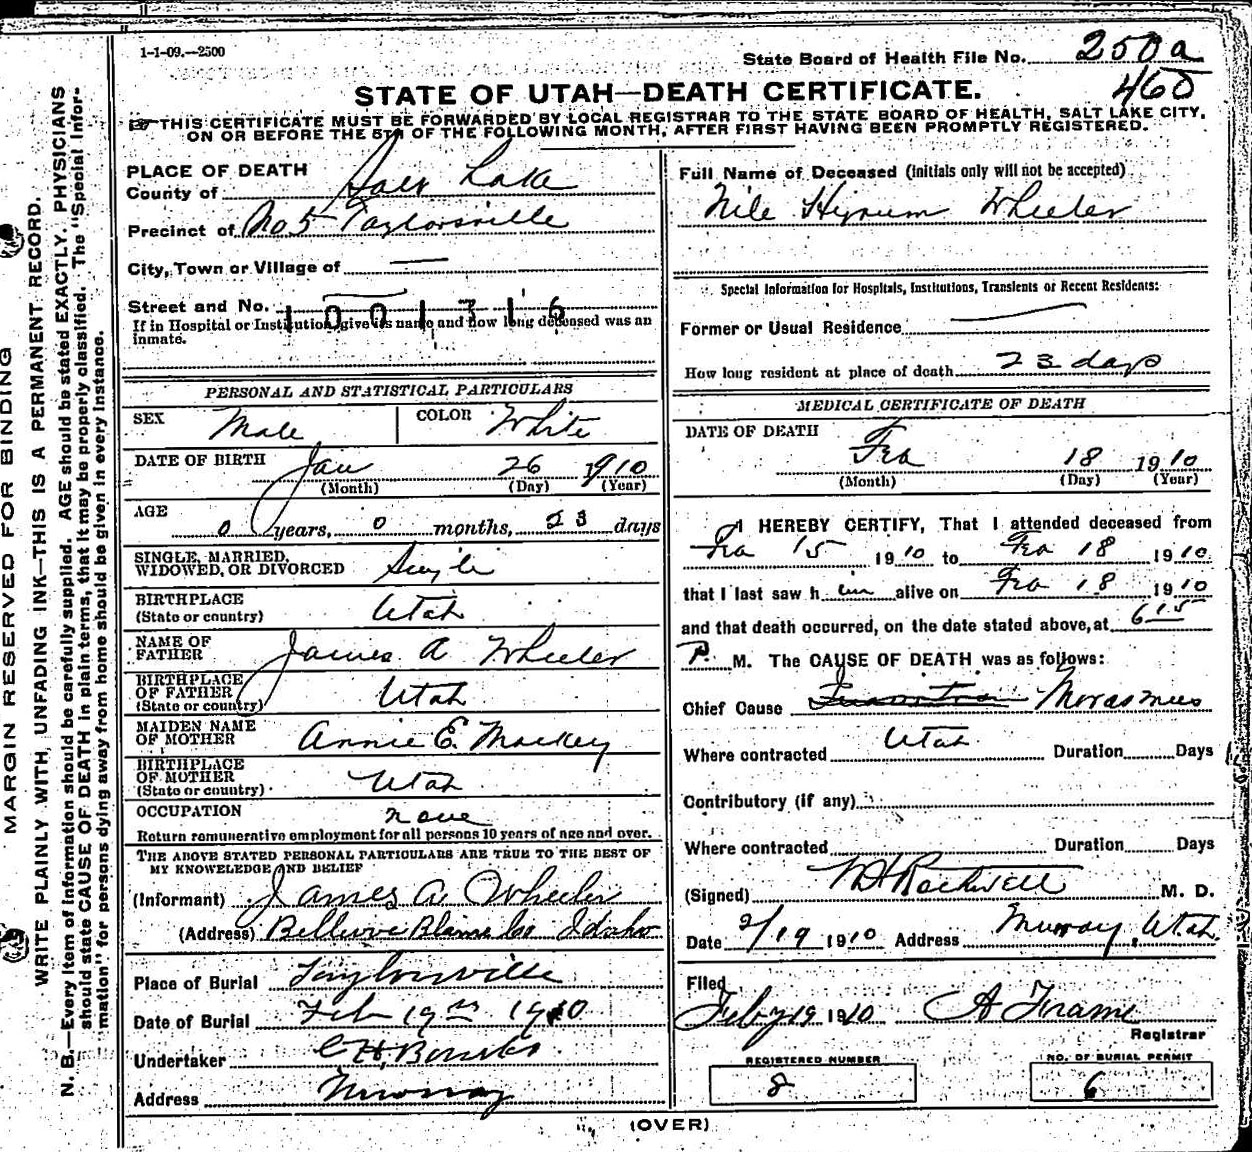 1-1-09.—2500
State Board of Health File No. 250a
460
STATE OF UTAH—DEATH CERTIFICATE.
☞ THIS CERTIFICATE MUST BE FORWARDED BY LOCAL REGISTRAR TO THE STATE BOARD OF HEALTH, SALT LAKE CITY,
ON OR BEFORE THE 5TH OF THE FOLLOWING MONTH, AFTER FIRST HAVING BEEN PROMPTLY REGISTERED.
MARGIN RESERVED FOR BINDING
WRITE PLAINLY WITH UNFADING INK—THIS IS A PERMANENT RECORD.
N. B.—Every item of information should be carefully supplied. AGE should be stated EXACTLY. PHYSICIANS
should state CAUSE OF DEATH in plain terms, that it may be properly classified. The "Special Infor-
mation" for persons dying away from home should be given in every instance.
PLACE OF DEATH
County of Salt Lake
Precinct of No 5 Taylorsville
City, Town or Village of —
Street and No. —
1001316
If in Hospital or Institution, give its name and how long deceased was an
inmate.
PERSONAL AND STATISTICAL PARTICULARS
SEX Male COLOR White
DATE OF BIRTH Jan 26 1910
(Month) (Day) (Year)
AGE 0 years, 0 months, 23 days
SINGLE, MARRIED,
WIDOWED, OR DIVORCED Single
BIRTHPLACE
(State or country) Utah
NAME OF
FATHER James A Wheeler
BIRTHPLACE
OF FATHER
(State or country) Utah
MAIDEN NAME
OF MOTHER Annie E. Mackey
BIRTHPLACE
OF MOTHER
(State or country) Utah
OCCUPATION none
Return remunerative employment for all persons 10 years of age and over.
THE ABOVE STATED PERSONAL PARTICULARS ARE TRUE TO THE BEST OF
MY KNOWELEDGE AND BELIEF
(Informant) James A. Wheeler
(Address) Bellevue Blaine Co Idaho
Place of Burial Taylorsville
Date of Burial Feb 19th 1910
Undertaker C H
Address Murray
Full Name of Deceased (initials only will not be accepted)
Nile Hyrum Wheeler
Special Information for Hospitals, Institutions, Transients or Recent Residents:
Former or Usual Residence —
How long resident at place of death 23 days
MEDICAL CERTIFICATE OF DEATH
DATE OF DEATH
Feb 18 1910
(Month) (Day) (Year)
I HEREBY CERTIFY, That I attended deceased from
Feb 15 1910 to Feb 18 1910
that I last saw h im alive on Feb 18 1910
and that death occurred, on the date stated above, at 6 15
P. M. The CAUSE OF DEATH was as follows:
Chief Cause Marasmus
Where contracted Utah Duration Days
Contributory (if any)
Where contracted Duration Days
(Signed) Rockwell M. D.
Date 2/19 1910 Address Murray, Utah.
Filed
Feby 19 1910 A Frame
Registrar
REGISTERED NUMBER
8
NO. OF BURIAL PERMIT
6
(OVER)